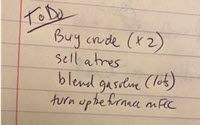 To Do
Buy crude (x2)
sell atres
blend gasoline (lots)
turn up the furnace